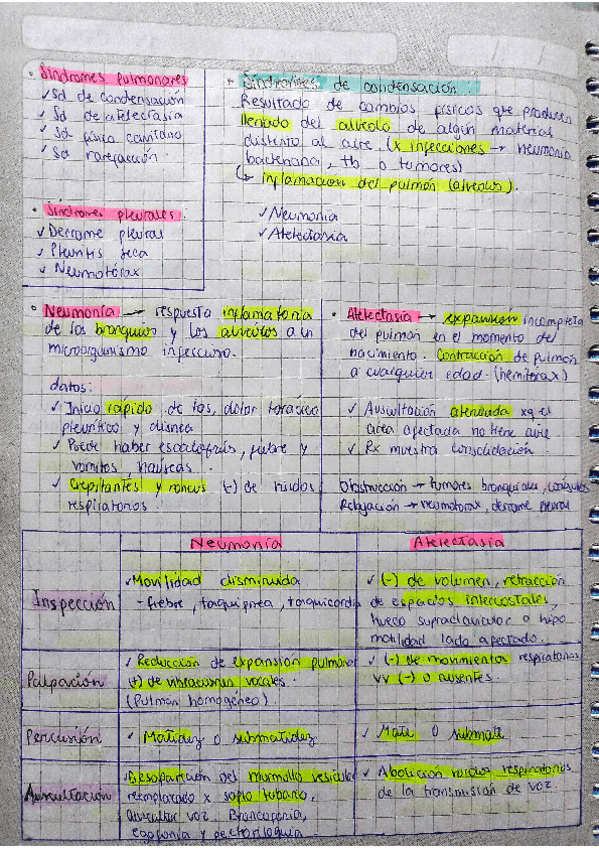 • Síndromes pulmonares
✓ Sd de condensación
✓ Sd de atelectasia
✓ Sd físico cavitario
✓ Sd rarefacción
• Síndromes pleurales
✓ Derrame pleural
✓ Pleuritis seca
✓ Neumotórax
Síndromes de condensación
Resultado de cambios físicos que producen
llenado del alveolo de algún material
distinto al aire (x infecciones → neumonía
bacteriana, tb o tumores)
↳ inflamación del pulmón (alveolos).
✓ Neumonía
✓ Atelectasia
• Neumonía → respuesta inflamatoria
de los bronquios y los alveolos a un
microorganismo infeccioso.
datos:
✓ Inicio rápido de tos, dolor torácico
pleurítico y disnea
✓ Puede haber escalofríos, fiebre y
vómitos, náuseas.
✓ Crepitantes y roncus (-) de ruidos
respiratorios.
• Atelectasia → expansión incompleta
del pulmón en el momento del
nacimiento. Contracción de pulmón
a cualquier edad. (hemitorax)
✓ Auscultación atenuada xq el
area afectada no tiene aire
✓ Rx muestra consolidación.
Obstrucción → tumores bronquiales,
Relajación → neumotorax, derrame pleural
Neumonía
Atelectasia
Inspección
✓ Movilidad disminuida
- fiebre, taquipnea, taquicardia
✓ (-) de volumen, retracción
de espacios intercostales,
hueco supraclavicular o hipo
motilidad lado afectado.
Palpación
✓ Reducción de expansión pulmonar
(+) de vibraciones vocales.
(Pulmon homogéneo)
✓ (-) de movimientos respiratorios
VV (-) o ausentes.
Percusión
✓ Matidez o submatidez
✓ Mate o submate
Auscultación
✓ Desaparición del murmullo vesicular
reemplazado x soplo tubario,
auscultar voz. Broncofonía,
egofonía y pectoriloquia.
✓ Abolición ruidos respiratorios
de la transmisión de voz.